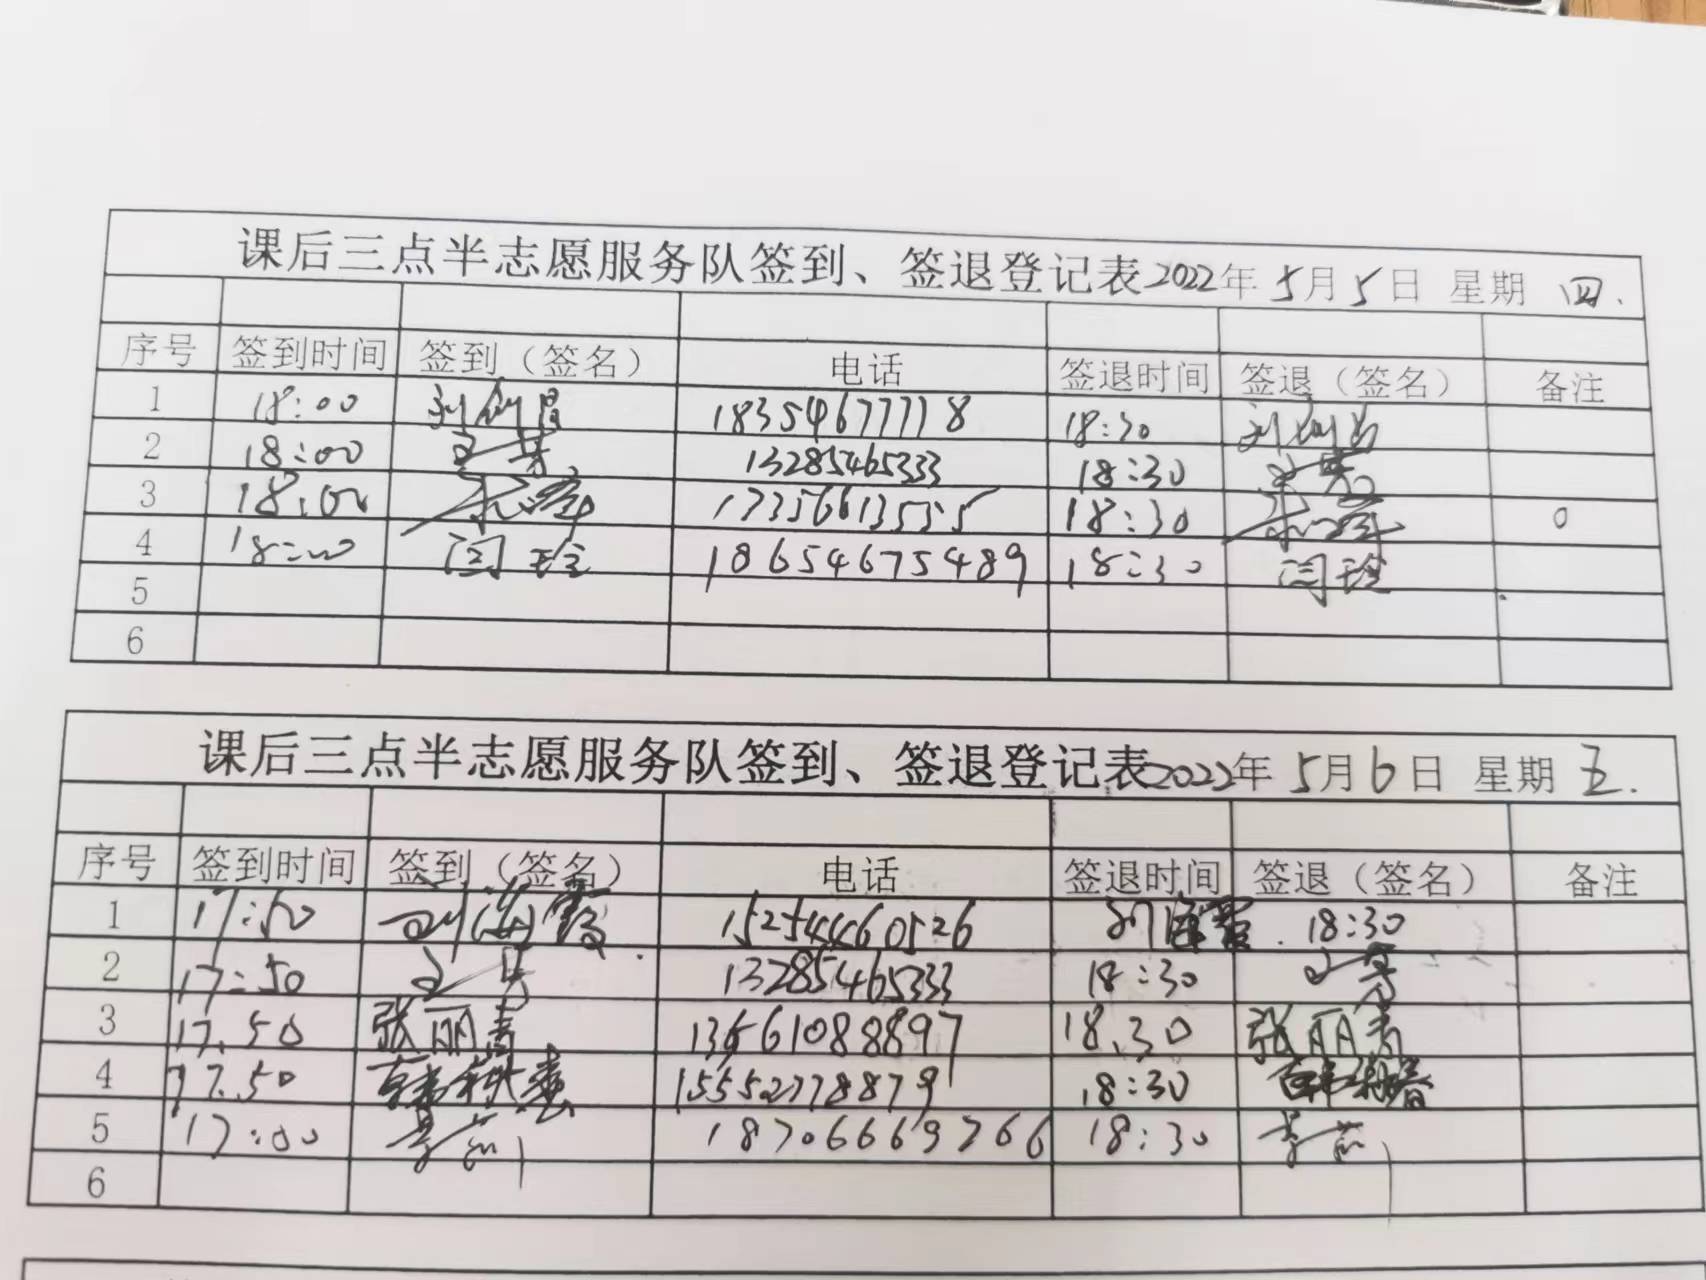 课后三点半志愿服务队签到、签退登记表2022年 5月5日 星期 四.
序号 签到时间 签到（签名） 电话 签退时间 签退（签名） 备注
1 18:00 18354677718 18:30
2 18:00 13285465333 18:30
3 18:00 17356613555 18:30
4 18:00 闫玲 18654675489 18:30 闫玲
5
6
课后三点半志愿服务队签到、签退登记表2022年 5月6日 星期 五.
序号 签到时间 签到（签名） 电话 签退时间 签退（签名） 备注
1 17:50 刘海霞 15254460526 刘海霞. 18:30
2 17:50 13285465333 18:30
3 17.50 张丽 18.30 张丽
4 17.50 15552778879 18:30
5 17:00 18706669266 18:30
6